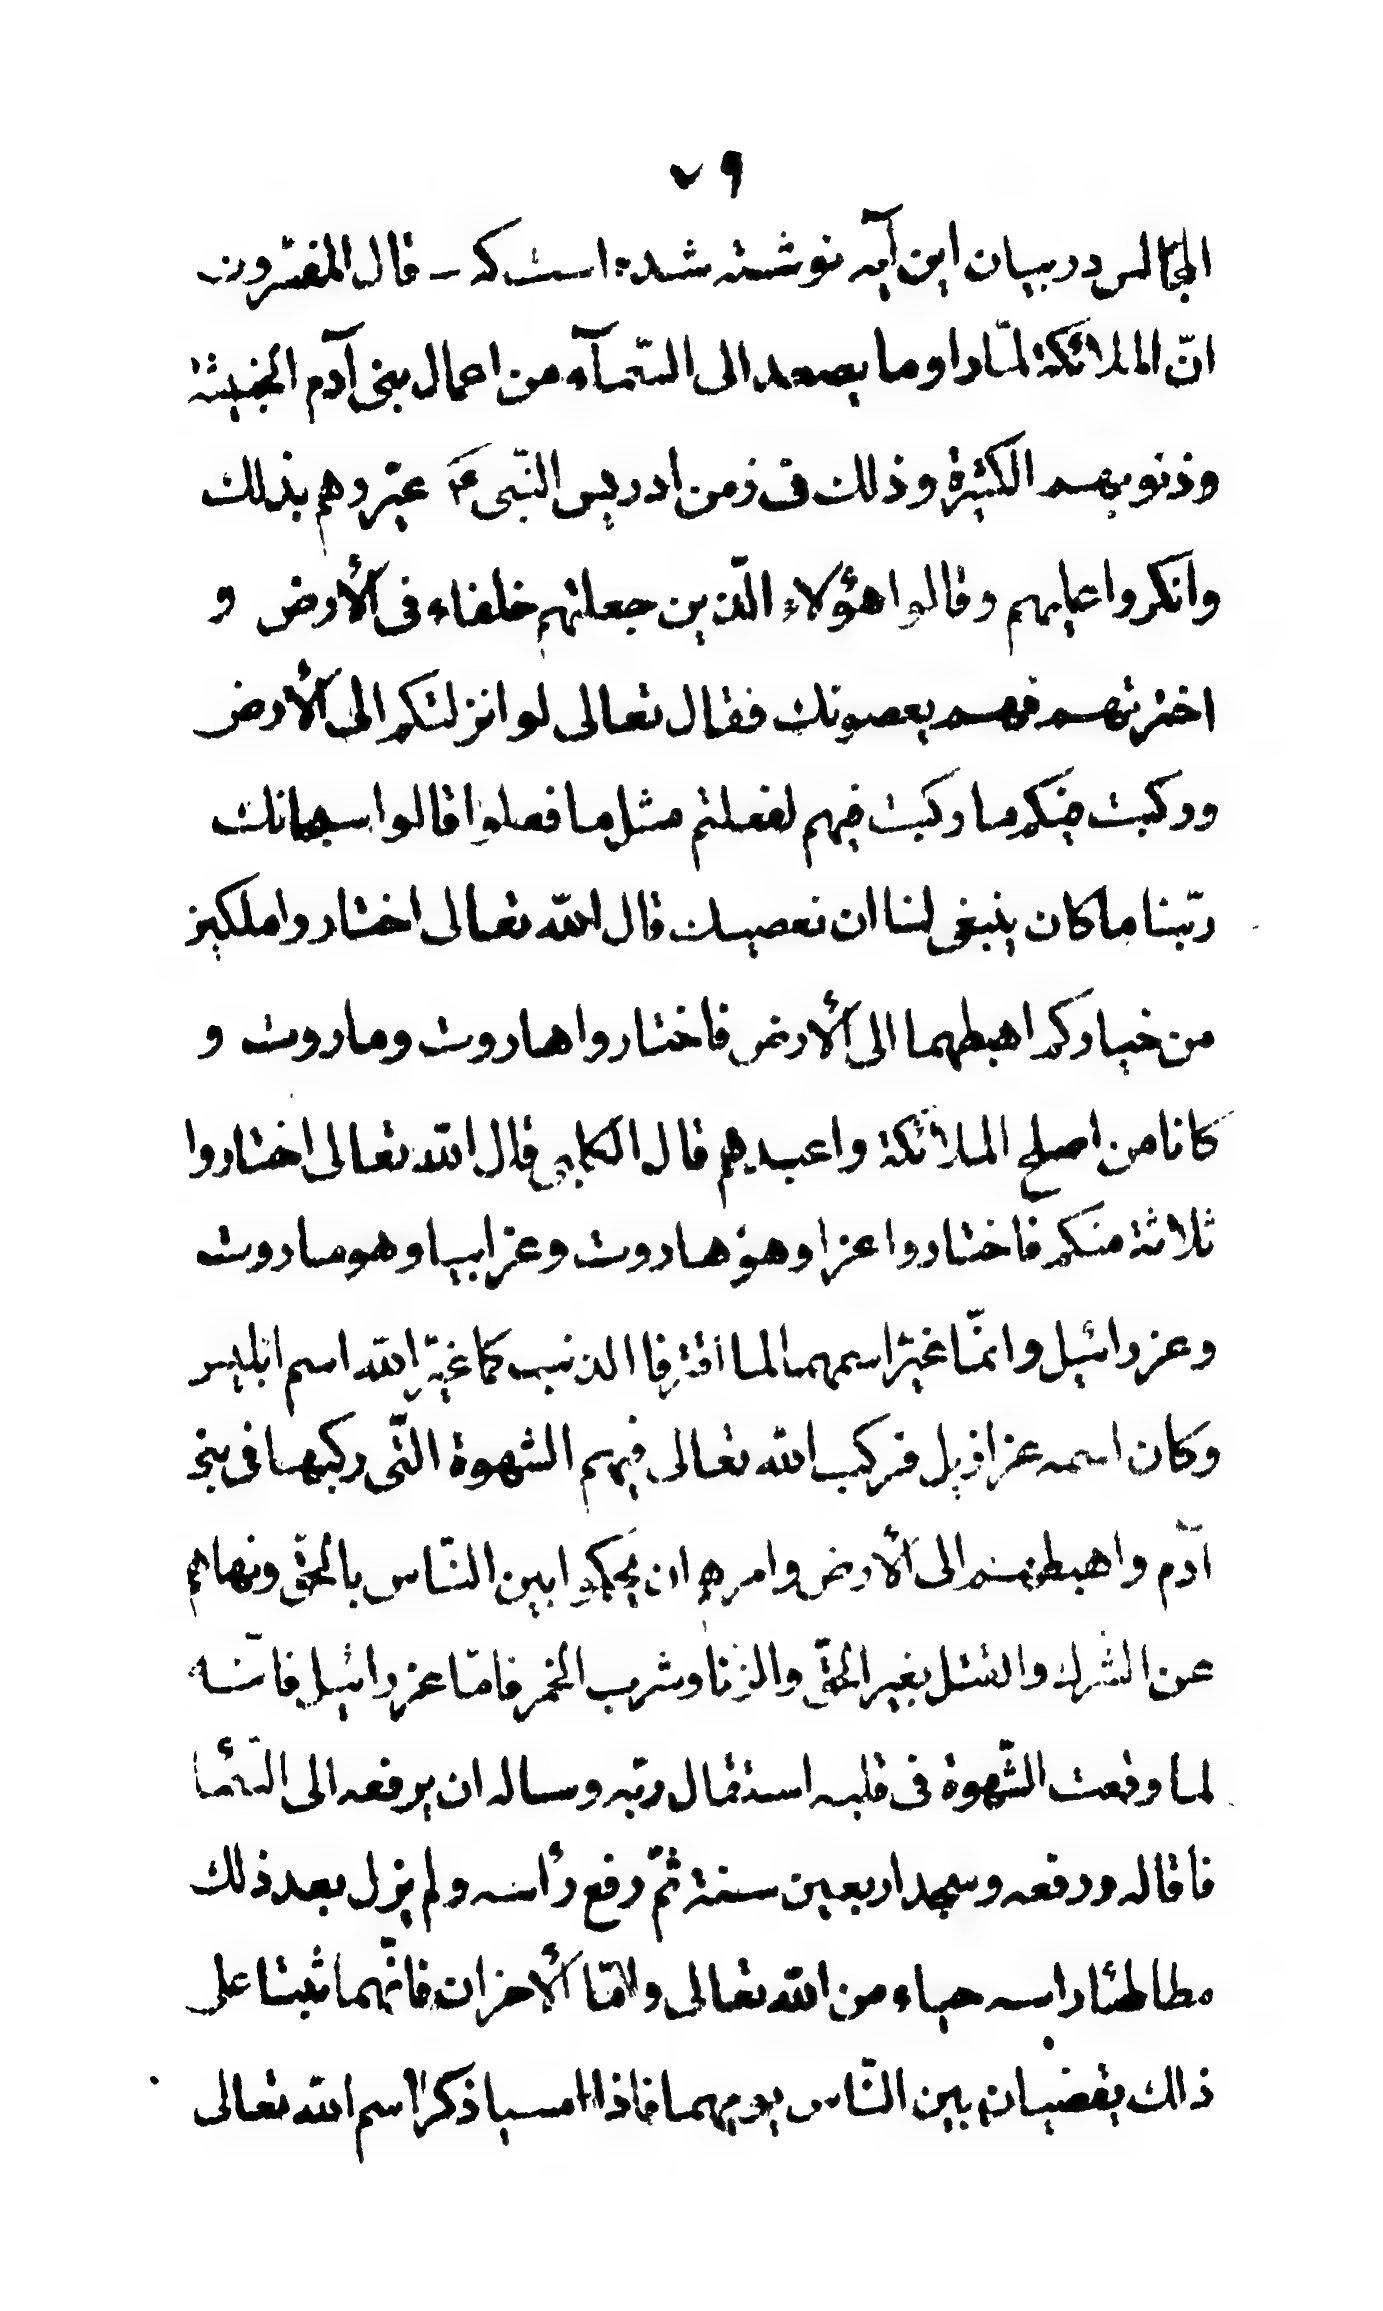 ۷۹
المجالس در بیان این آیه نوشته شده است که – قال المفسّرون
انّ الملائكة لمّا راوا ما يصعد الى السّمآء من اعمال بنى آدم الخبيثة
وذنوبهم الكثيرة وذلك فى زمن ادريس النّبى ع عيّروهم بذلك
وانكروا عليهم وقالوا هؤلاء الّذين جعلتهم خلفاء فى الأرض و
اخترتهم فهم يعصونك فقال تعالى لو انزلتكم الى الأرض
وركبت فيكم ما ركبت فيهم لفعلتم مثل ما فعلوا قالوا سبحانك
ربّنا ما كان ينبغى لنا ان نعصيك قال الله تعالى اختاروا ملكين
من خياركم اهبطهما الى الأرض فاختاروا هاروت وماروت و
كانا من اصلح الملائكة واعبدهم قال الكلبى قال الله تعالى اختاروا
ثلاثة منكم فاختاروا عزا وهو هاروت وعزابيا وهو ماروت
وعزرائيل وانمّا غيّر اسمهما لما اقترفا الذنب كما غيّر الله اسم ابليس
وكان اسمه عزازيل فركب الله تعالى فيهم الشهوة الّتى ركبها فى بنى
آدم واهبطهم الى الأرض وامرهم ان يحكموا بين النّاس بالحقّ ونهاهم
عن الشرك والقتل بغير الحقّ والزنا وشرب الخمر فامّا عزرائيل فانّه
لما وقعت الشّهوة فى قلبه استقال ربّه وساله ان يرفعه الى السّمأ
فاقاله ورفعه وسجد اربعين سنة ثمّ رفع رأسه ولم يزل بعد ذلك
مطاطئا راسه حياء من الله تعالى وامّا الأخران فانّهما ثبتا على
ذلك يقضيان بين النّاس يومهما فاذا امسيا ذكرا اسم الله تعالى